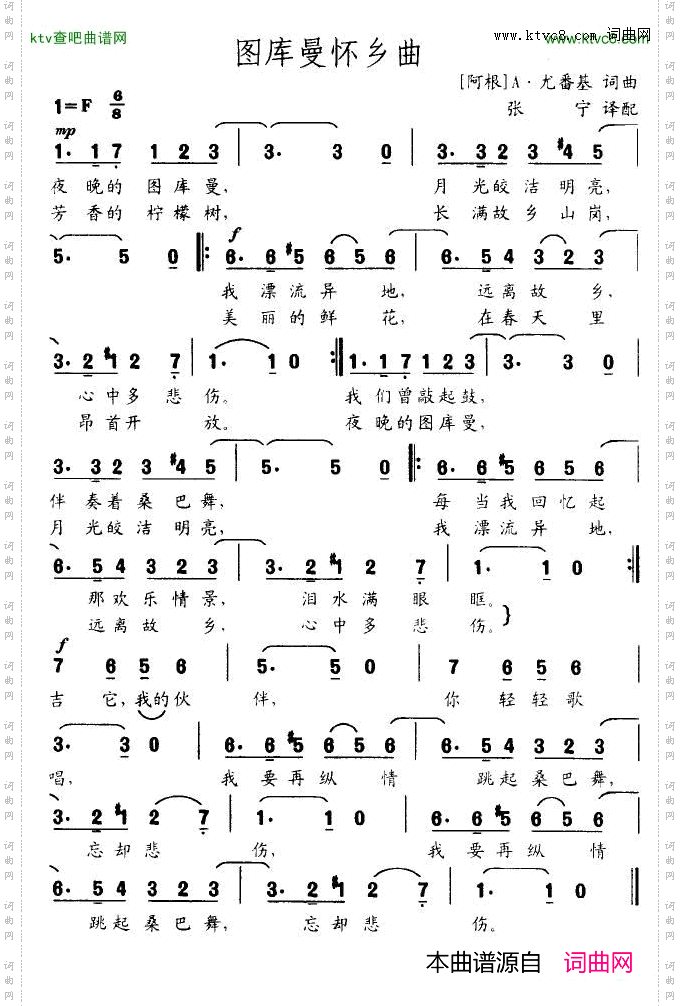 ktv查吧曲谱网
www.ktvc8.com 词曲网
www.ktvc8.com
图库曼怀乡曲
[阿根]A·尤番基 词曲
张 宁 译配
1=F 6/8
mp
1· 1 7 1 2 3 | 3· 3 0 | 3· 3 2 3 #4 5 |
夜晚的图库曼, 月光皎洁明亮,
芳香的柠檬树, 长满故乡山岗,
f
5· 5 0 |: 6· 6 #5 6 5 6 | 6· 5 4 3 2 3 |
我漂流异地, 远离故乡,
美丽的鲜花, 在春天里
3· 2 #1 2 7 | 1· 1 0 :| 1· 1 7 1 2 3 | 3· 3 0 |
心中多悲伤。 我们曾敲起鼓,
昂首开放。 夜晚的图库曼,
3· 3 2 3 #4 5 | 5· 5 0 |: 6· 6 #5 6 5 6 |
伴奏着桑巴舞, 每当我回忆起
月光皎洁明亮, 我漂流异地,
6· 5 4 3 2 3 | 3· 2 #1 2 7 | 1· 1 0 :|
那欢乐情景, 泪水满眼眶。
远离故乡, 心中多悲伤。}
f
7 6 5 6 | 5· 5 0 | 7 6 5 6 |
吉它,我的伙伴, 你轻轻歌
3· 3 0 | 6· 6 #5 6 5 6 | 6· 5 4 3 2 3 |
唱, 我要再纵情 跳起桑巴舞,
3· 2 #1 2 7 | 1· 1 0 | 6· 6 #5 6 5 6 |
忘却悲伤, 我要再纵情
6· 5 4 3 2 3 | 3· 2 #1 2 7 | 1· 1 0 :|
跳起桑巴舞, 忘却悲伤。
本曲谱源自 词曲网